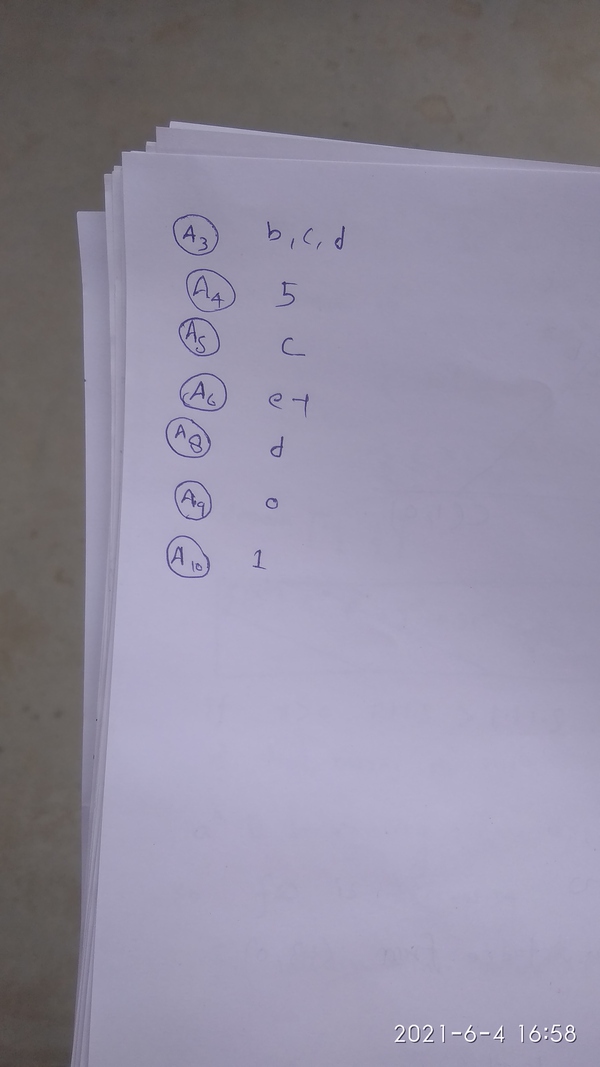 A3 b, c, d
A4 5
A5 c
A6
A8 d
A9 0
A10 1
2021-6-4 16:58